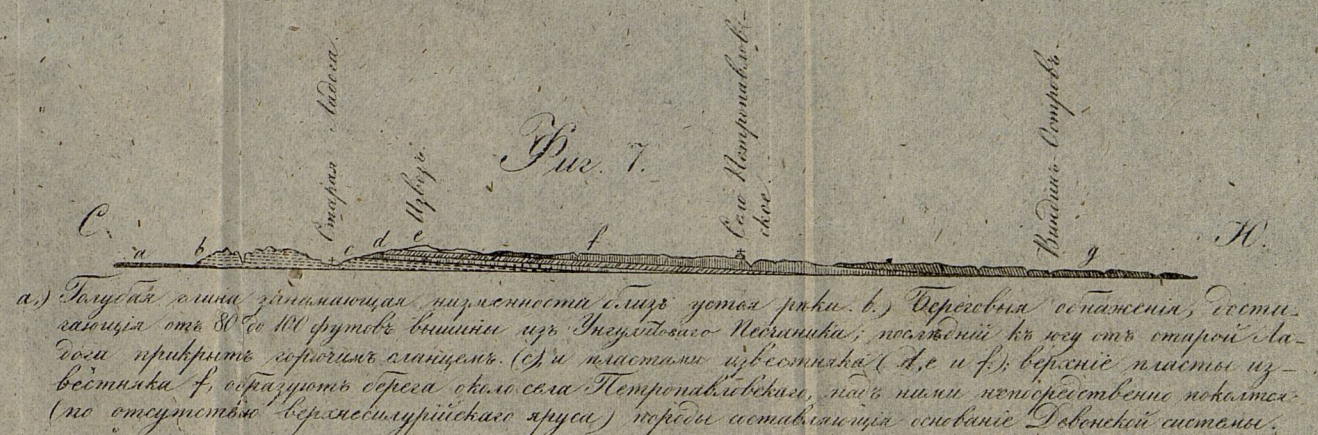 Старая Ладога.
Извозъ.
Фиг. 7.
Село Петропавлов-
ское.
Виндинъ-Островъ.
С.
Ю.
a b c d e f g
a.) Голубая глина занимающая низменности близъ устья рѣки. b.) Береговыя обнаженія, дости-
гающія отъ 80 до 100 футовъ вышины изъ Унгулитоваго Песчаника; послѣдній къ югу отъ старой Ла-
доги прикрытъ горючимъ сланцемъ. (c), и пластами известняка (d, e и f.); верхніе пласты из-
вестняка f, образуютъ берега около села Петропавловскаго, надъ ними непосредственно покоятся
(по отсутствію верхнесилурійскаго яруса) породы составляющія основаніе Девонской системы.